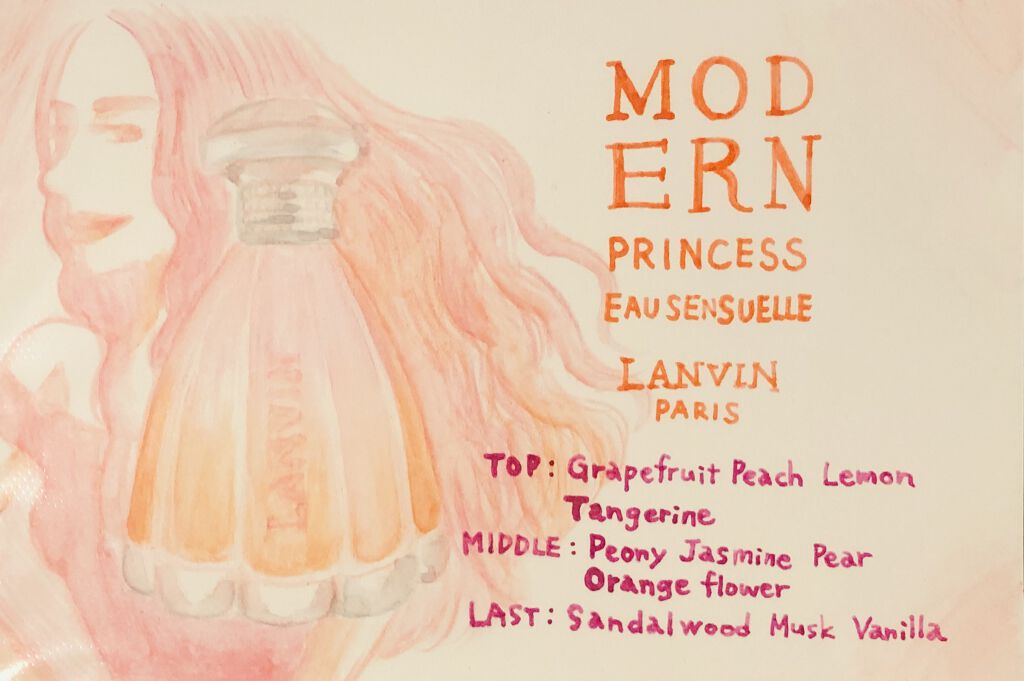 MOD
ERN
PRINCESS
EAU SENSUELLE
LANVIN
PARIS
LANVIN
TOP: Grapefruit Peach Lemon
Tangerine
MIDDLE: Peony Jasmine Pear
Orange flower
LAST: Sandalwood Musk Vanilla